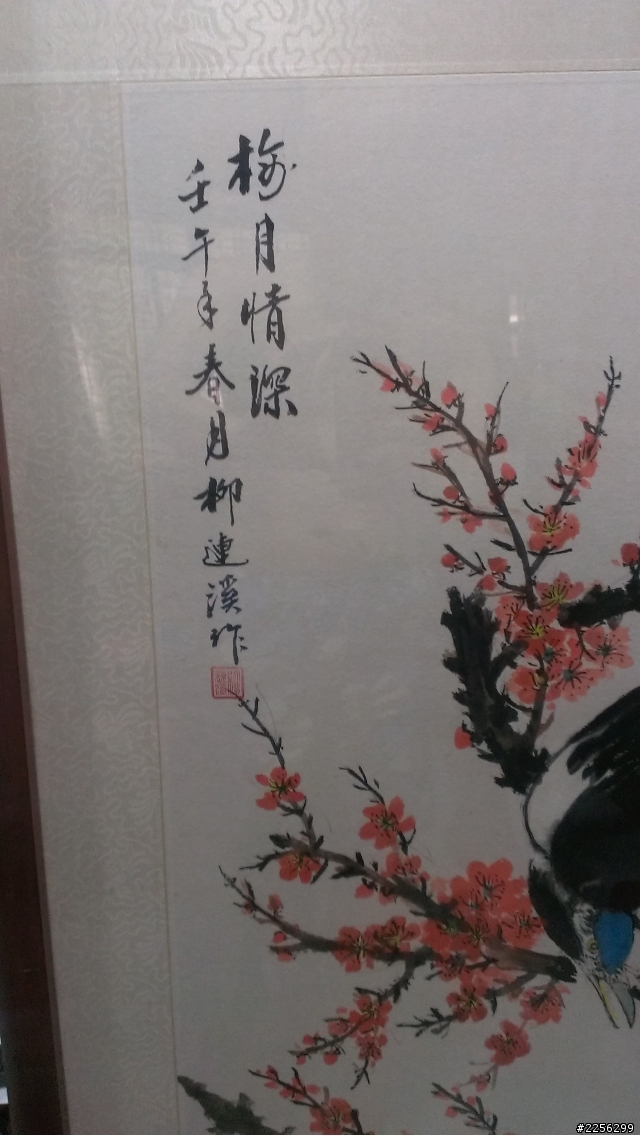 梅月情深
壬午年春月柳連溪作
#2256299